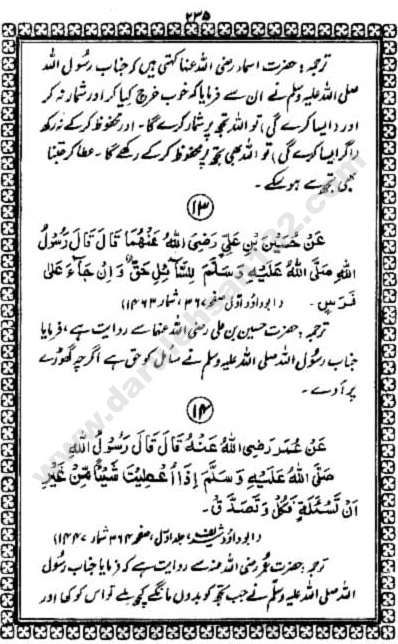 ۲۳۵
ترجمہ: حضرت اسماء رضی اللہ عنہا کہتی ہیں کہ جناب رسول اللہ
صلی اللہ علیہ وسلم نے ان سے فرمایا کہ خوب خرچ کیا کر اور شمار نہ کر
اور (ایسا کرے گی) تو اللہ تجھ پر شمار کرے گا۔ اور محفوظ کر کے نہ رکھ
(اگر ایسا کرے گی) تو اللہ بھی تجھ پر محفوظ کر کے رکھے گا۔ عطا کر جتنا
بھی تجھ سے ہو سکے۔
۱۳
عَنْ حُسَيْنِ بْنِ عَلِيٍّ رَضِيَ اللهُ عَنْهُمَا قَالَ قَالَ رَسُوْلُ
اللهِ صَلَّى اللهُ عَلَيْهِ وَسَلَّمَ لِلسَّائِلِ حَقٌّ وَاِنْ جَاءَ عَلٰى
فَرَسٍ۔ (ابوداؤد اول صفحہ ۳۶۷، شمار ۱۴۶۳)
ترجمہ: حضرت حسین بن علی رضی اللہ عنہما سے روایت ہے، فرمایا
جناب رسول اللہ صلی اللہ علیہ وسلم نے سائل کو حق ہے اگرچہ گھوڑے
پر آوے۔
۱۴
عَنْ عُمَرَ رَضِيَ اللهُ عَنْهُ قَالَ قَالَ رَسُوْلُ اللهِ
صَلَّى اللهُ عَلَيْهِ وَسَلَّمَ اِذَا اُعْطِيْتَ شَيْئًا مِّنْ غَيْرِ
اَنْ تَسْئَلَهٗ فَكُلْ وَتَصَدَّقْ۔
(ابوداؤد شریف، جلد اول، صفحہ ۳۶۴ شمار ۱۴۴۷)
ترجمہ: حضرت عمر رضی اللہ عنہ سے روایت ہے کہ فرمایا جناب رسول
اللہ صلی اللہ علیہ وسلم نے جب تجھ کو بدوں مانگے کچھ ملے تو اس کو کھا اور